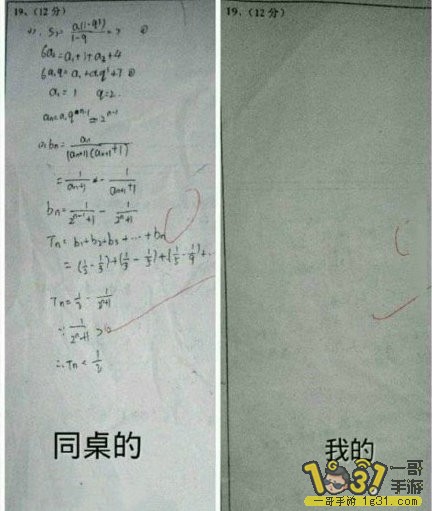 19、(12分)
(1). S₃= a₁(1-q³)/1-q =7 ①
6a₂=a₁+1+a₃+4
6a₁q=a₁+a₁q²+7 ②
a₁=1 q=2
aₙ=a₁qⁿ⁻¹=2ⁿ⁻¹
bₙ= aₙ/(aₙ+1)(aₙ₊₁+1)
= 1/aₙ+1 - 1/aₙ₊₁+1
bₙ= 1/2ⁿ⁻¹+1 - 1/2ⁿ+1
Tₙ= b₁+b₂+b₃+…+bₙ
Tₙ= 1/2 - 1/2ⁿ+1
∵ 1/2ⁿ+1 >0
∴Tₙ< 1/2
同桌的
19、(12分)
我的
1931
一哥手游
一哥手游1g31.com